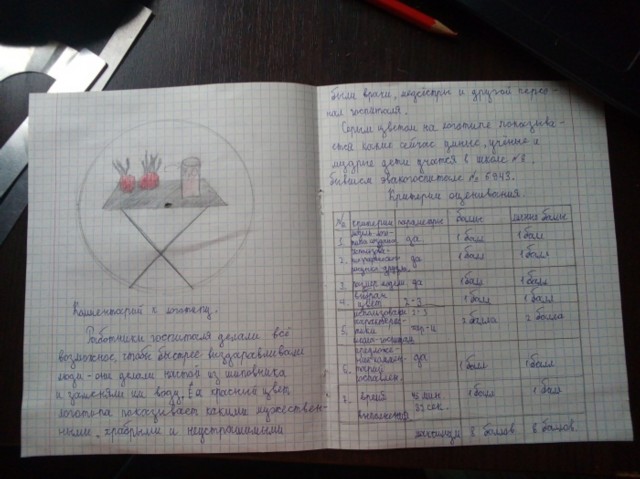 Комментарий к логотипу.
Работники госпиталя делали всё
возможное, чтобы быстрее выздоравливали
люди - они делали настой из шиповника
и заменяли им воду. Ея красный цвет
логотипа показывает какими мужествен-
ными, храбрыми и неустрашимыми
были врачи, медсёстры и другой персо-
нал госпиталя.
Серым цветом на логотипе показыва-
ется какие сейчас умные, учёные и
мудрые дети учатся в школе №8,
бывшем эвакогоспитале № 6943.
Критерии оценивания.
№ критерии параметры баллы
1. да 1 бал 1 бал
2. да 1 бал 1 бал
3. размер да 1 бал 1 бал
4. выбран цвет 2-3 1 бал 1 бал
5. использованы характерис- тики 2-3 2 балла 2 балла
6. да 1 балл 1 балл
7. время выполнения 45 мин. сек. 1 балл 1 балл
8 баллов 8 баллов.